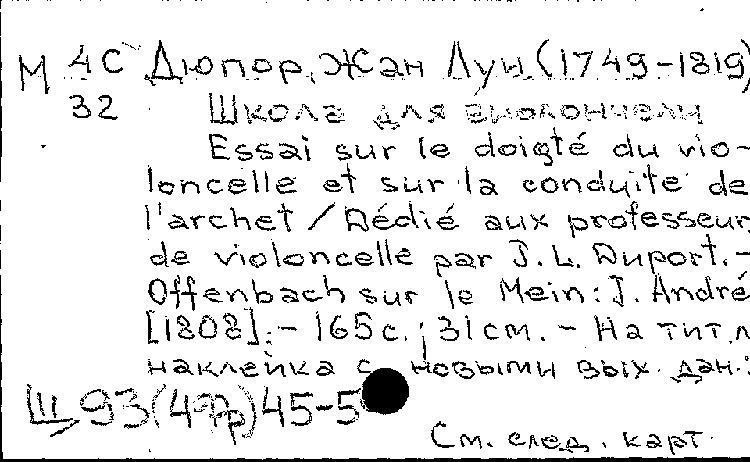 М 4С Дюпор, Жан Луи (1749-1819)
32 Школа для виолончели
Essai sur le doigté du vio-
loncelle et sur la conduite de
l'archet / Dédié aux professeurs
de violoncelle par J. L. Duport. -
Offenbach sur le Mein: J. André
[1808]. - 165 с.; 31 см. - На тит. л
наклейка с новыми вых. дан.:
Щ93(4Фр)45-5
См. след. карт.